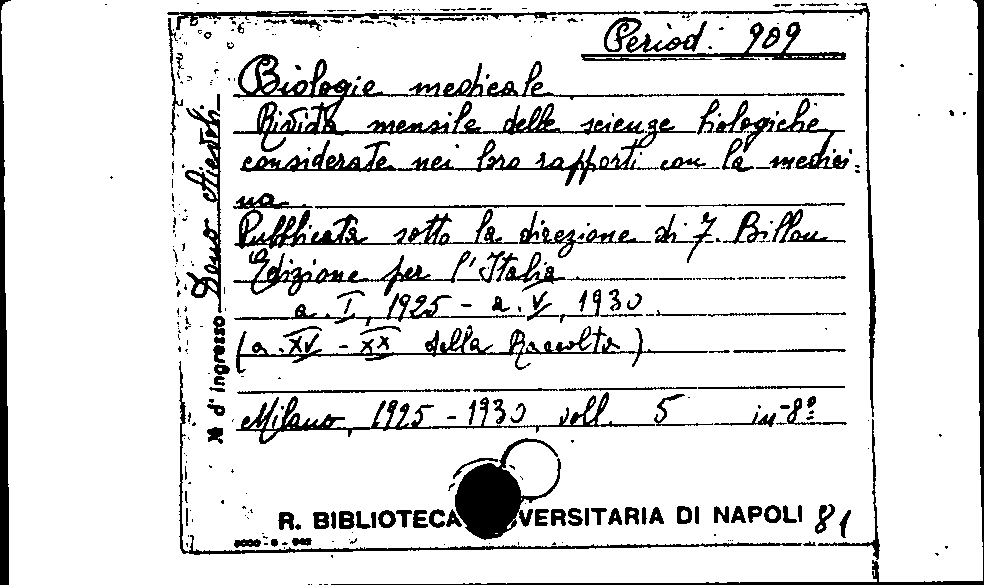 Period. 909
Biologie medicale
Rivista mensile delle scienze biologiche
considerate nei loro rapporti con la medici-
na.
Pubblicata sotto la direzione di F. Billon
Edizione per l'Italia.
a. I, 1925 - a. V, 1930.
(a. XV - XX della Raccolta).
Milano, 1925 - 1930, voll. 5 in-8º
N. d'ingresso Dono
R. BIBLIOTECA VERSITARIA DI NAPOLI 81